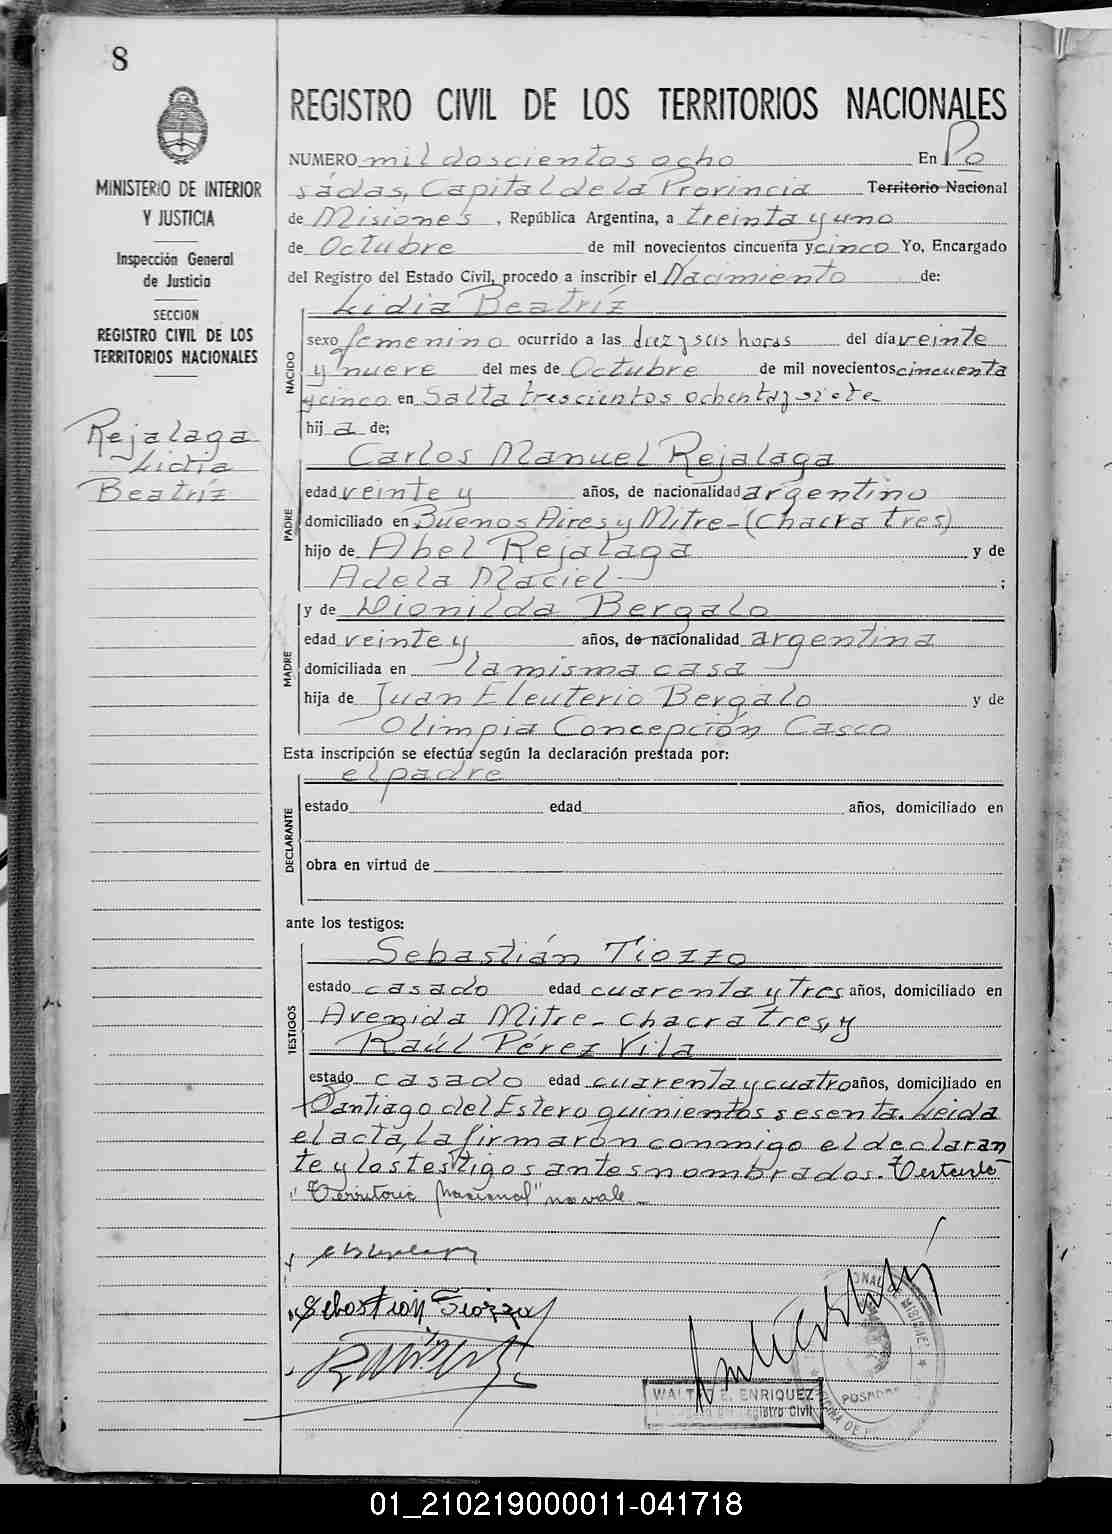 8
MINISTERIO DE INTERIOR
Y JUSTICIA
Inspección General
de Justicia
SECCION
REGISTRO CIVIL DE LOS
TERRITORIOS NACIONALES
Rejalaga
Lidia
Beatríz
REGISTRO CIVIL DE LOS TERRITORIOS NACIONALES
NUMERO mil doscientos ocho En Po
sadas, Capital de la Provincia Territorio Nacional
de Misiones, República Argentina, a treinta y uno
de Octubre de mil novecientos cincuenta y cinco Yo, Encargado
del Registro del Estado Civil, procedo a inscribir el Nacimiento de:
NACIDO
Lidia Beatríz
sexo femenino ocurrido a las diez y seis horas del día veinte
y nueve del mes de Octubre de mil novecientos cincuenta
y cinco en Salta trescientos ochenta y siete
hij a de;
PADRE
Carlos Manuel Rejalaga
edad veinte y años, de nacionalidad argentino
domiciliado en Buenos Aires y Mitre-(Chacra tres)
hijo de Abel Rejalaga y de
Adela Maciel ;
MADRE
y de Dionilda Bergalo
edad veinte y años, de nacionalidad argentina
domiciliada en la misma casa
hija de Juan Eleuterio Bergalo y de
Olimpia Concepción Casco
Esta inscripción se efectúa según la declaración prestada por:
DECLARANTE
el padre
estado edad años, domiciliado en
obra en virtud de
ante los testigos:
TESTIGOS
Sebastián Tiozzo
estado casado edad cuarenta y tres años, domiciliado en
Avenida Mitre - chacra tres, y
Raúl Pérez Vila
estado casado edad cuarenta y cuatro años, domiciliado en
Santiago del Estero quinientos sesenta. Leida
el acta, la firmaron conmigo el declaran
te y los testigos antes nombrados. Testado
"Territorio Nacional" no vale -
Sebastián Tiozzo
WALTER E. ENRIQUEZ
Registro Civil
MISIONES
POSADAS
01_210219000011-041718